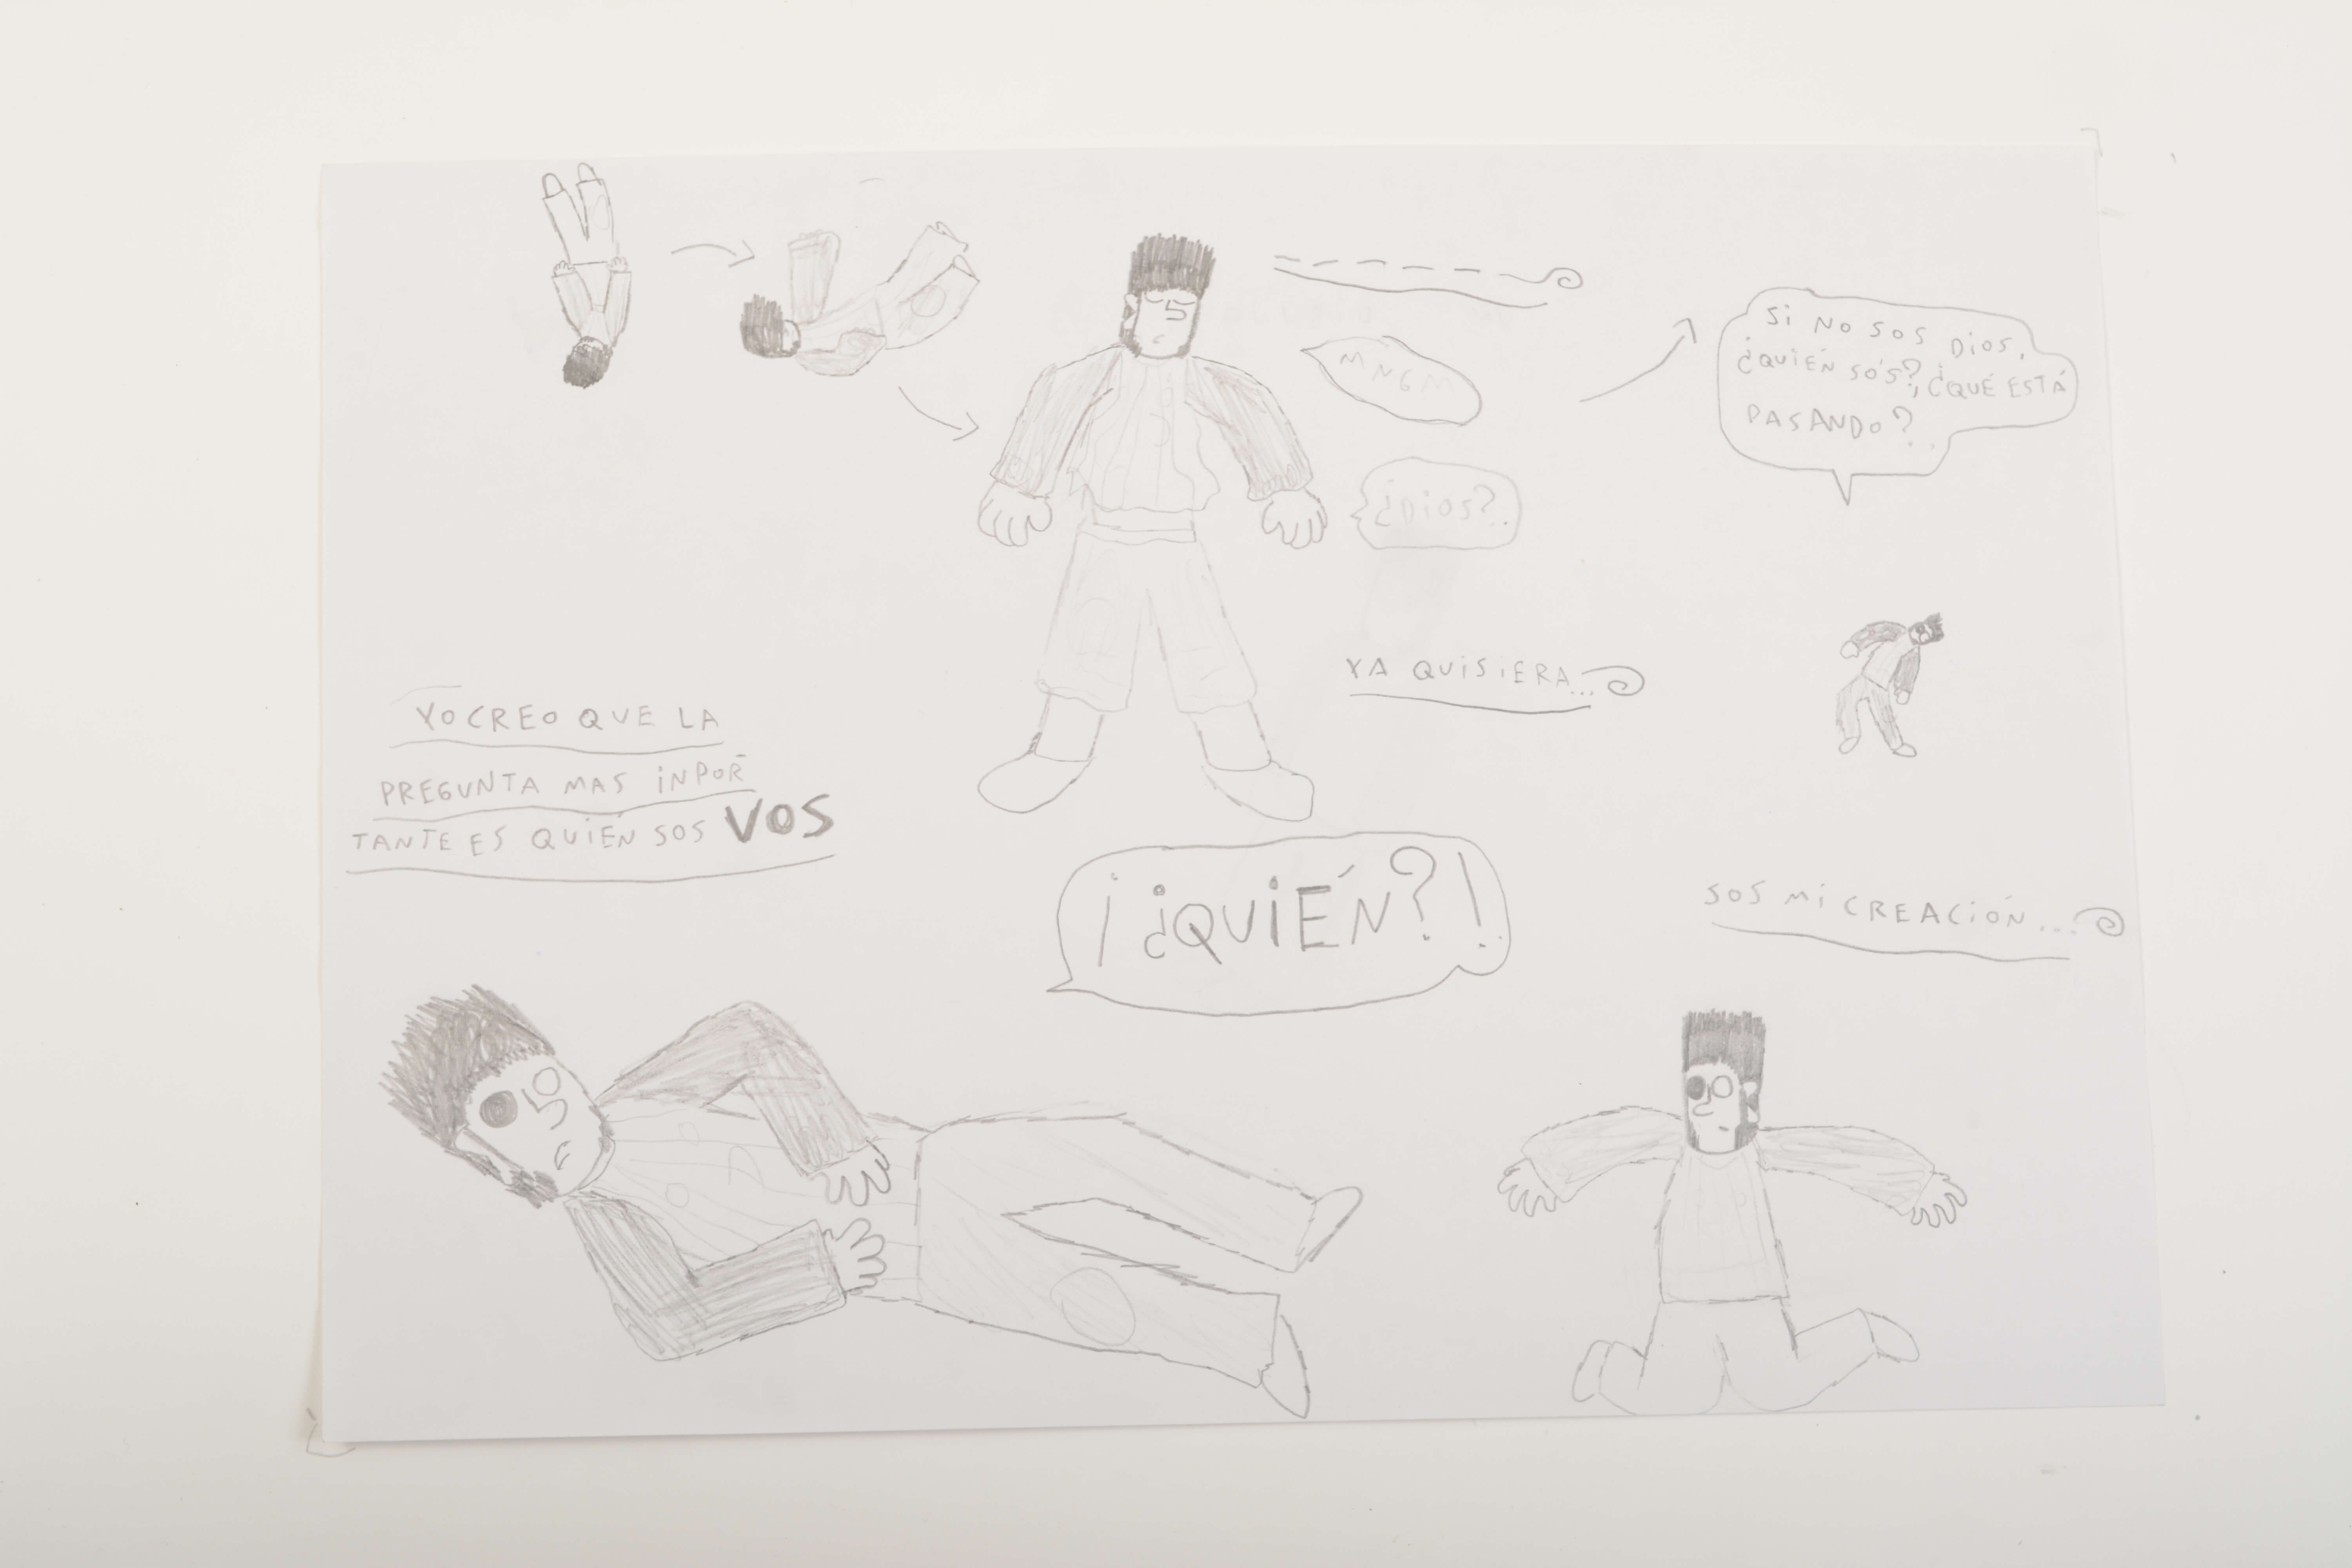 MNGM
¿DIOS?
YA QUISIERA...
SI NO SOS DIOS,
¿QUIÉN SOS?, ¿QUÉ ESTÁ
PASANDO?
YO CREO QUE LA
PREGUNTA MAS INPOR-
TANTE ES QUIÉN SOS VOS
¡¿QUIÉN?!
SOS MI CREACIÓN...